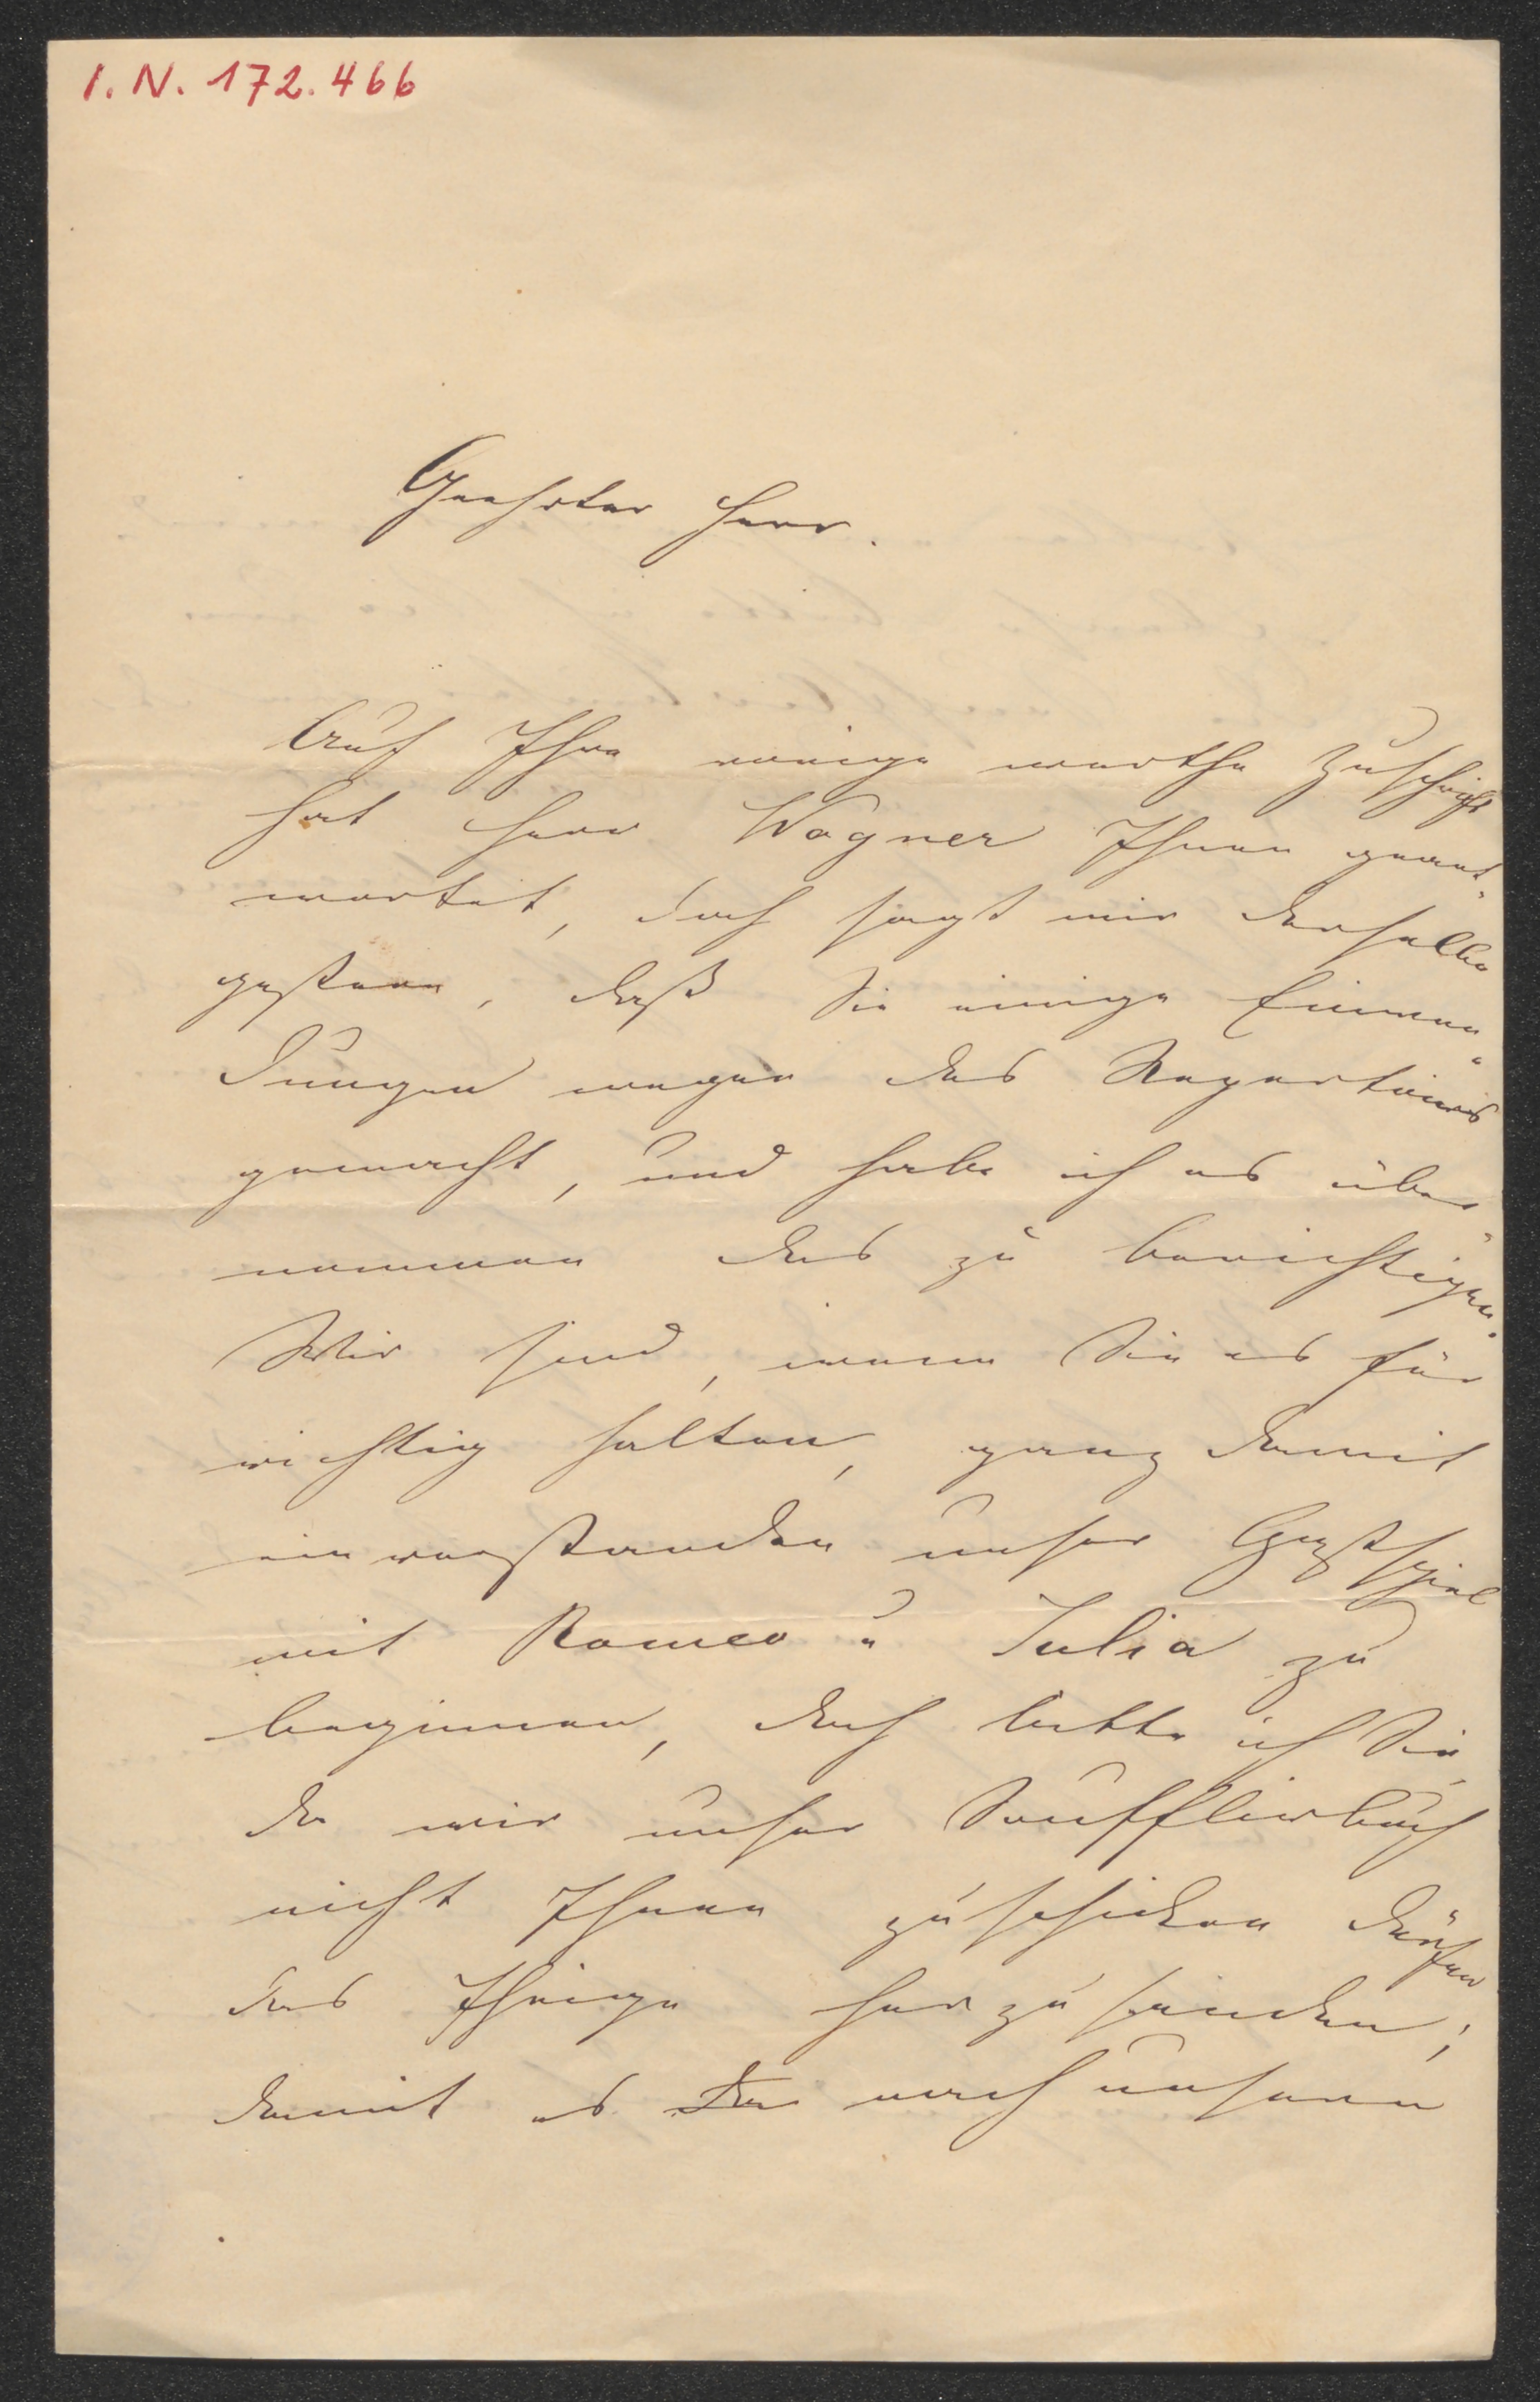 I. N. 172.466
Geehrter Herr.
Auf Ihre werthe Zuschrift
hat Herr Wagner Ihnen geant-
wortet, doch sagt mir derselbe
gestern, daß Sie einige Einwen-
dungen wegen des Repertoires
gemacht, und habe ich es über-
nommen das zu berichtigen.
Wir sind, wenn Sie es für
wichtig halten, ganz damit
einverstanden unser Gastspiel
mit Romeo u Julia zu
beginnen, doch bitte ich Sie,
da wir unser Soufflirbuch
nicht Ihnen zuschicken dürfen
das Ihrige herzusenden,
damit es nach unserm